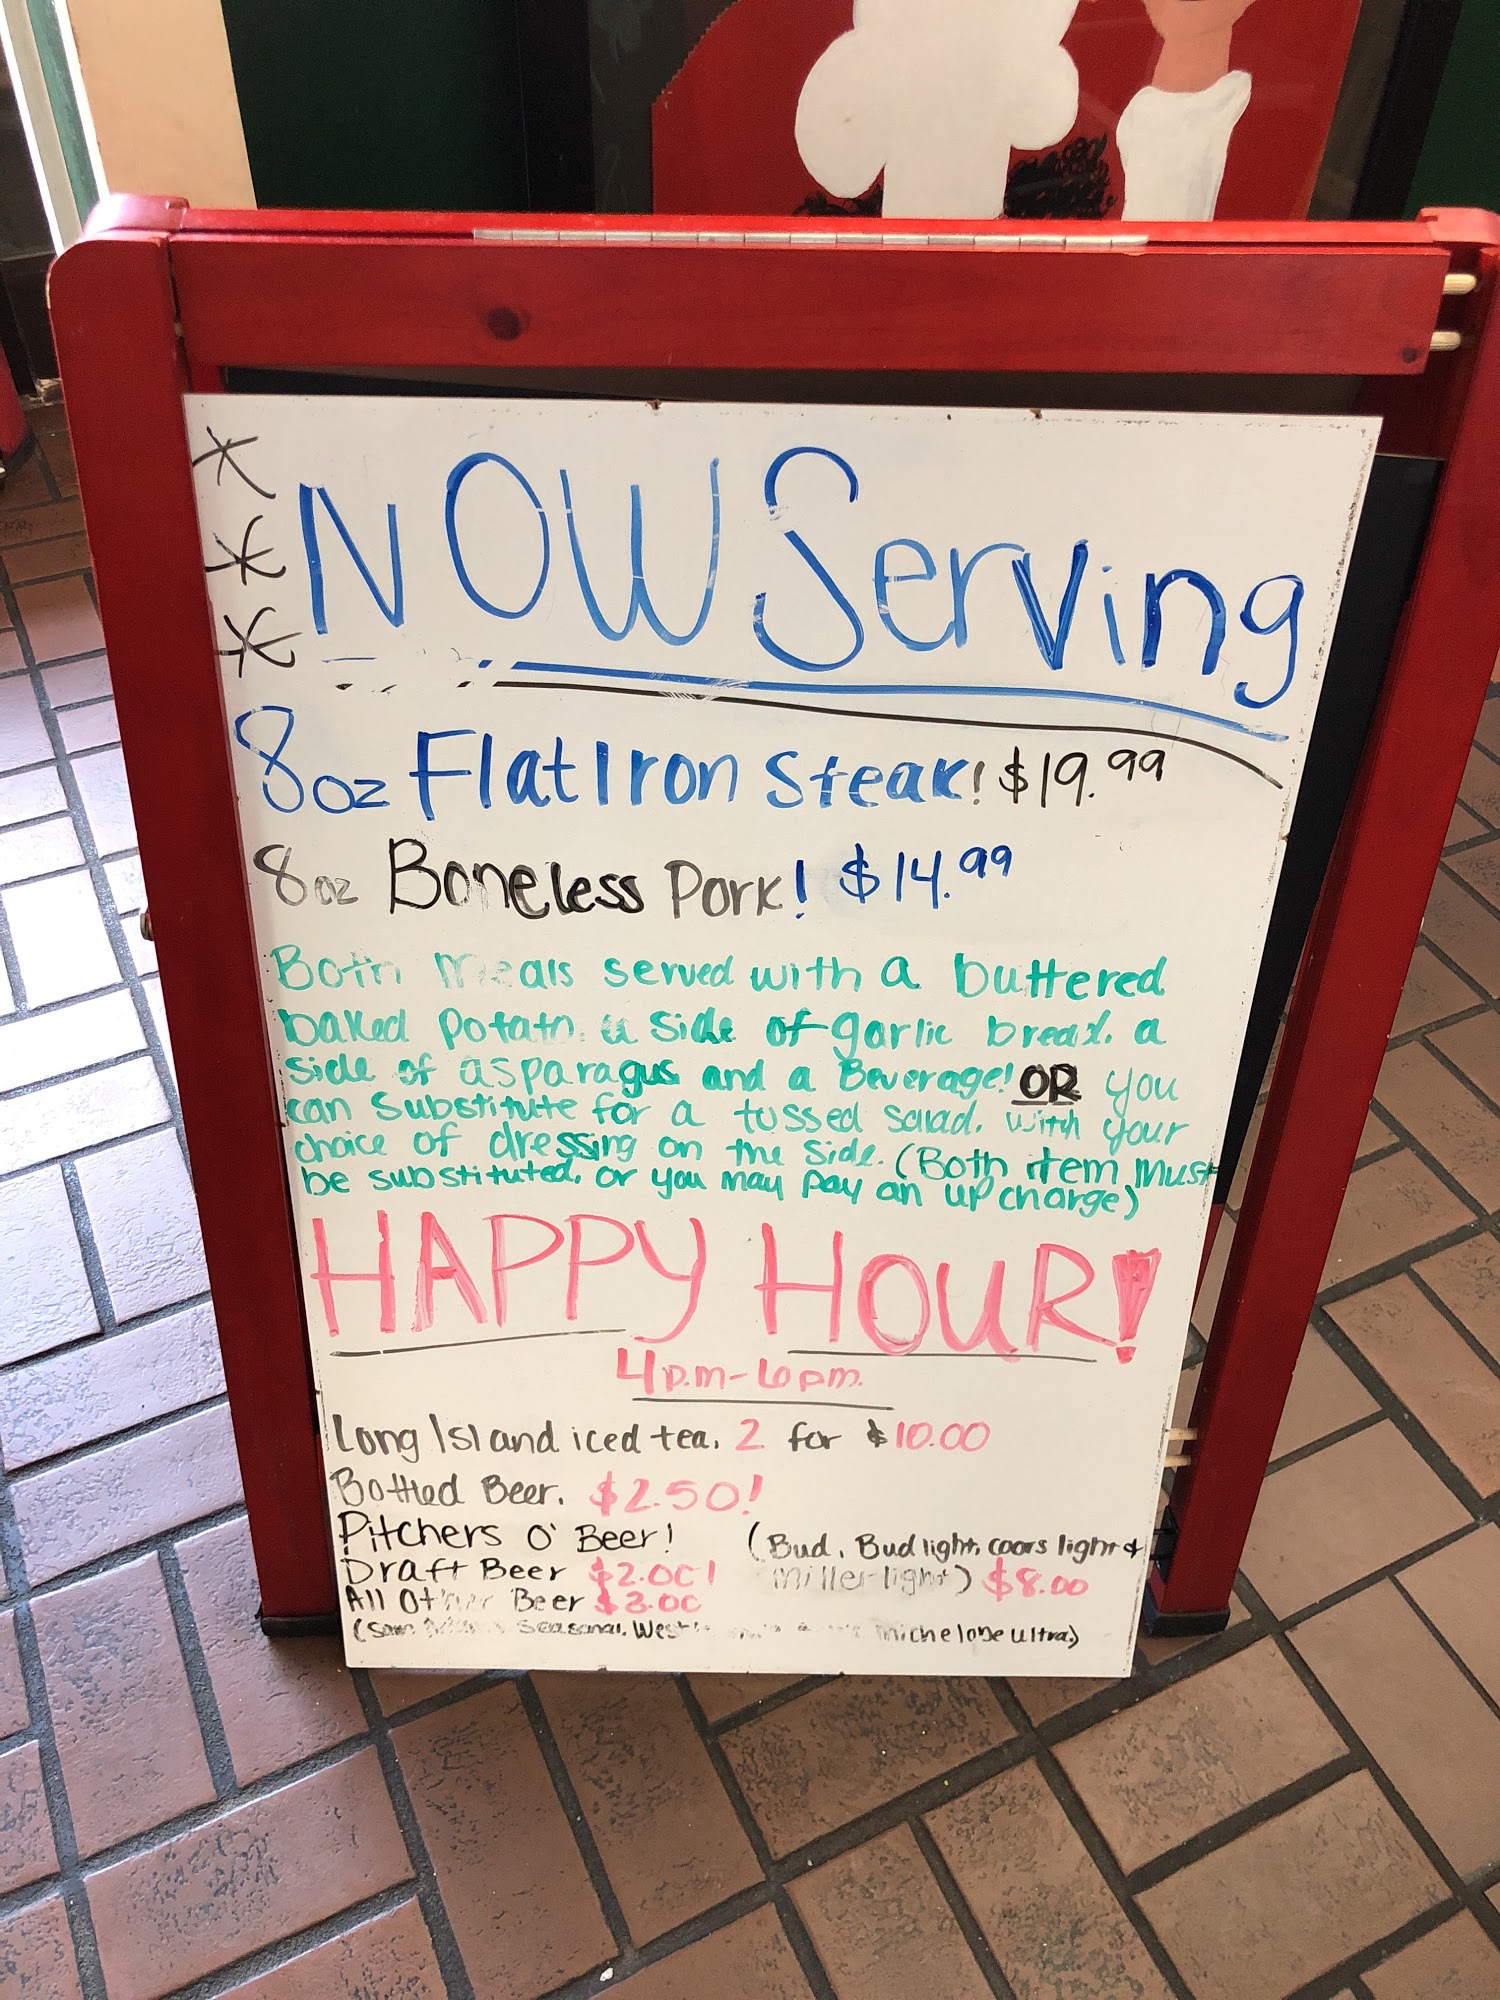 NOW Serving
8oz Flat Iron Steak! $19.99
8oz Boneless Pork! $14.99
Both meals served with a buttered
baked potato. a side of garlic bread. a
side of asparagus and a Beverage! OR you
can substitute for a tossed salad. with your
choice of dressing on the side. (Both item Must
be substituted. or you may pay an up charge)
HAPPY HOUR!
4p.m-6pm.
Long Island iced tea. 2 for $10.00
Bottled Beer. $2.50!
Pitchers O' Beer! (Bud. Bud light. coors light &
Draft Beer $2.00! miller light) $8.00
All Other Beer $3.00
(Sam Adams Seasonal. michelobe ultra)